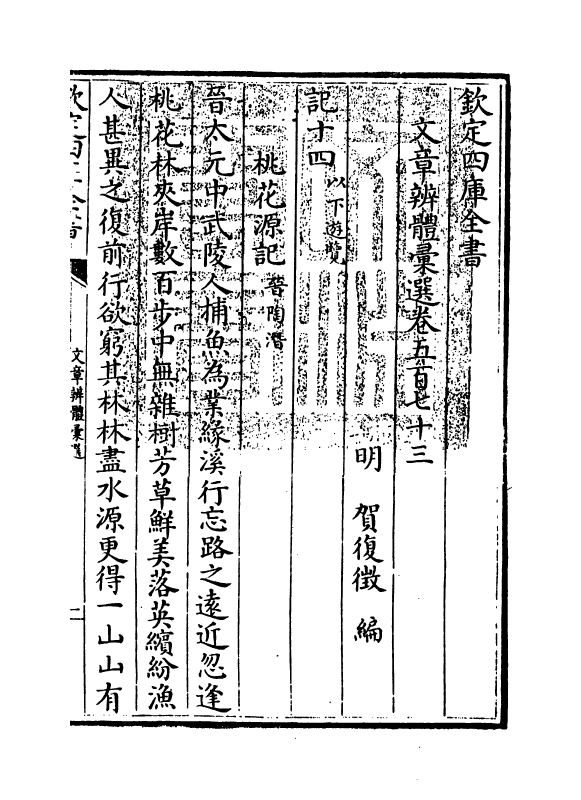 欽定四庫全書
文章辨體彚選卷五百七十三
明 賀復徵 編
記十四以下遊覽
桃花源記晉陶潛
晉太元中武陵人捕魚為業緣溪行忘路之遠近忽逢
桃花林夾岸數百步中無雜樹芳草鮮美落英繽紛漁
人甚異之復前行欲窮其林林盡水源更得一山山有
文章辨體彚選